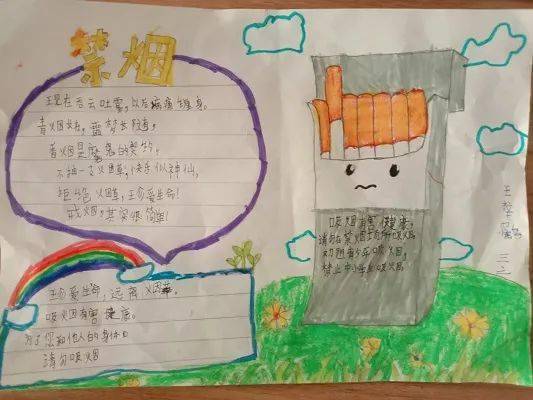 禁烟
现在吞云吐雾，以后病痛缠身。
青烟袅袅，噩梦长随，
香烟是魔鬼的契约，
不抽一支烟草，快乐似神仙，
拒绝烟草，珍爱生命！
戒烟，其实很简单！
珍爱生命，远离烟草。
吸烟有害健康。
为了您和他人的身体
请勿吸烟
吸烟有害健康，
请勿在禁烟
劝阻青少年吸烟，
禁止中小学生吸烟。
王梦
三